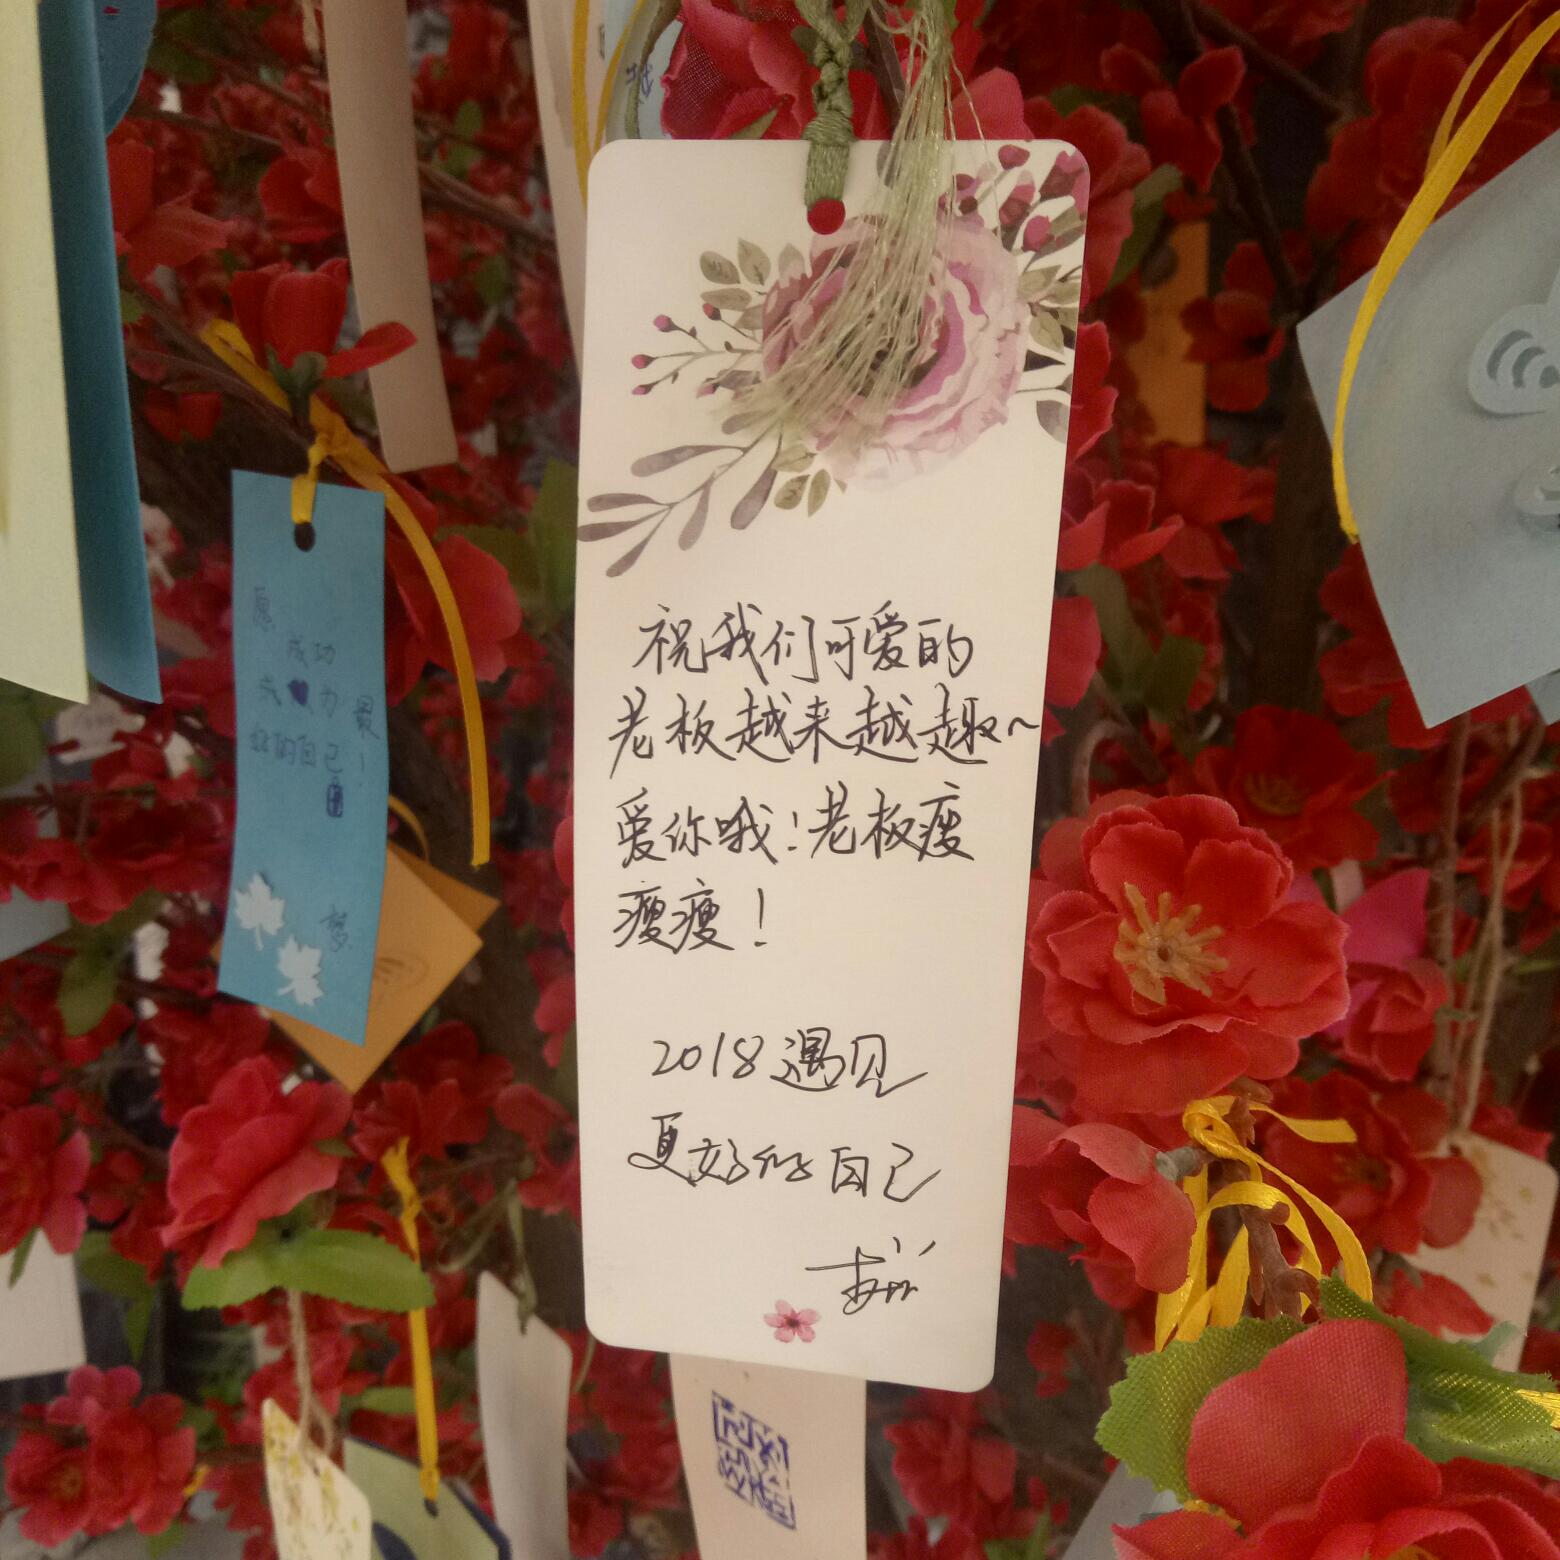 祝我们可爱的
老板越来越趣~
爱你哦!老板瘦
瘦瘦!
2018遇见
更好的自己
愿
成功
成 为 最
好的自己!
梦